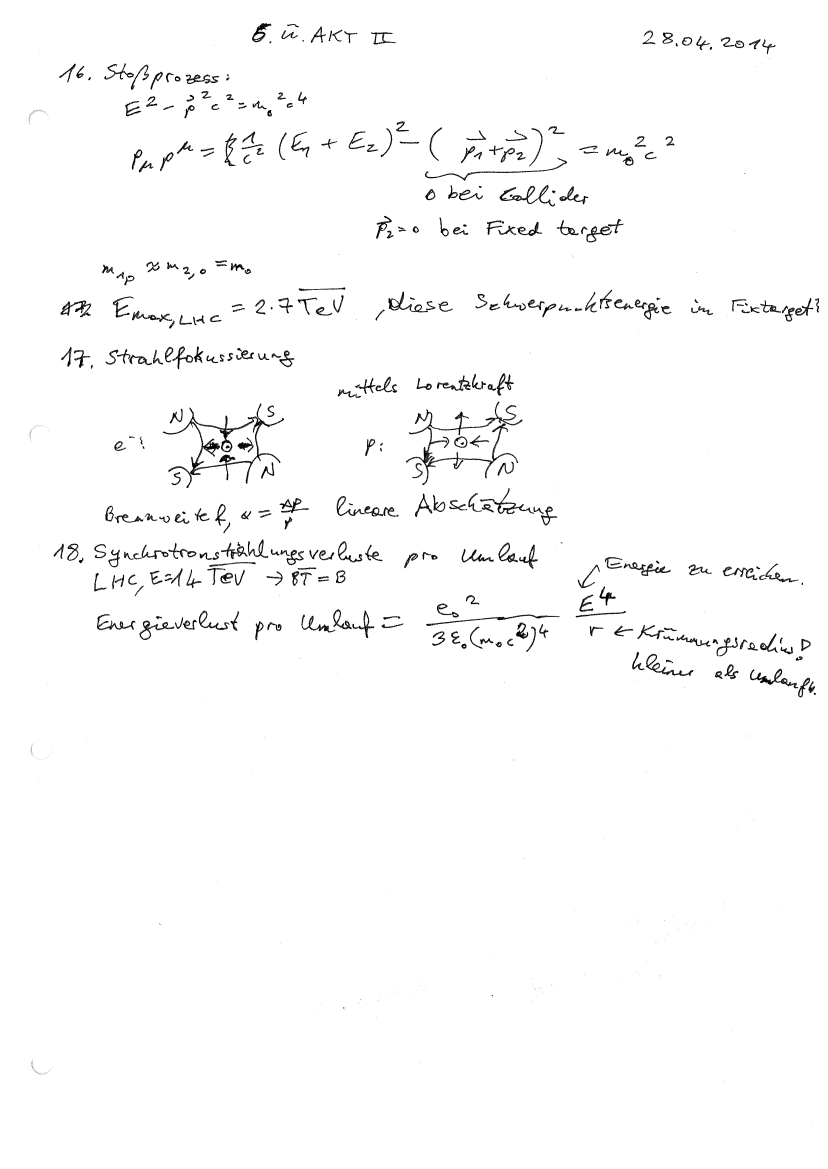 5. ü. AKT II 28.04.2014
16. Stoßprozess:
E² - p⃗²c² = m₀²c⁴
pμ p^μ = 1/c² (E₁ + E₂)² - (p⃗₁ + p⃗₂)² = m₀²c²
0 bei Collider
p⃗₂ = 0 bei Fixed target
m₁,₀ ≈ m₂,₀ = m₀
E_max, LHC = 2·7 TeV , diese Schwerpunktsenergie im Fixtarget?
17. Strahlfokussierung
mittels Lorentzkraft
e⁻: N S S N p: N S S N
Brennweite f, α = Δp/p lineare Abschätzung
18. Synchrotronstrahlungsverluste pro Umlauf
LHC, E=14 TeV → 8T = B
Energie zu erreichen.
Energieverlust pro Umlauf = e₀² / 3ε₀(m₀c²)⁴ E⁴ / r ← Krümmungsradius!
kleiner als Umlauf